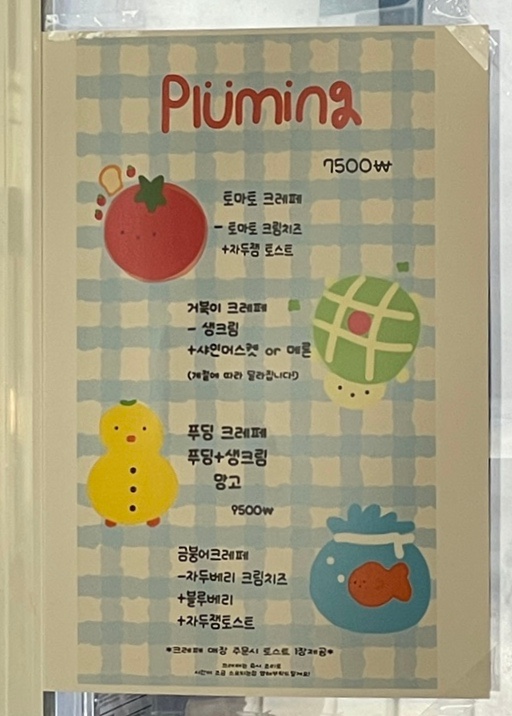 Plüming
7500₩
토마토 크레페
- 토마토 크림치즈
+자두잼 토스트
거북이 크레페
- 생크림
+샤인머스켓 or 메론
(계절에 따라 달라집니다!)
푸딩 크레페
푸딩+생크림
망고
9500₩
금붕어크레페
-자두베리 크림치즈
+블루베리
+자두잼토스트
*크레페 매장 주문시 토스트 1장제공*
크레페는 즉시 조리로
시간이 조금 소요되는점 양해부탁드릴게요!